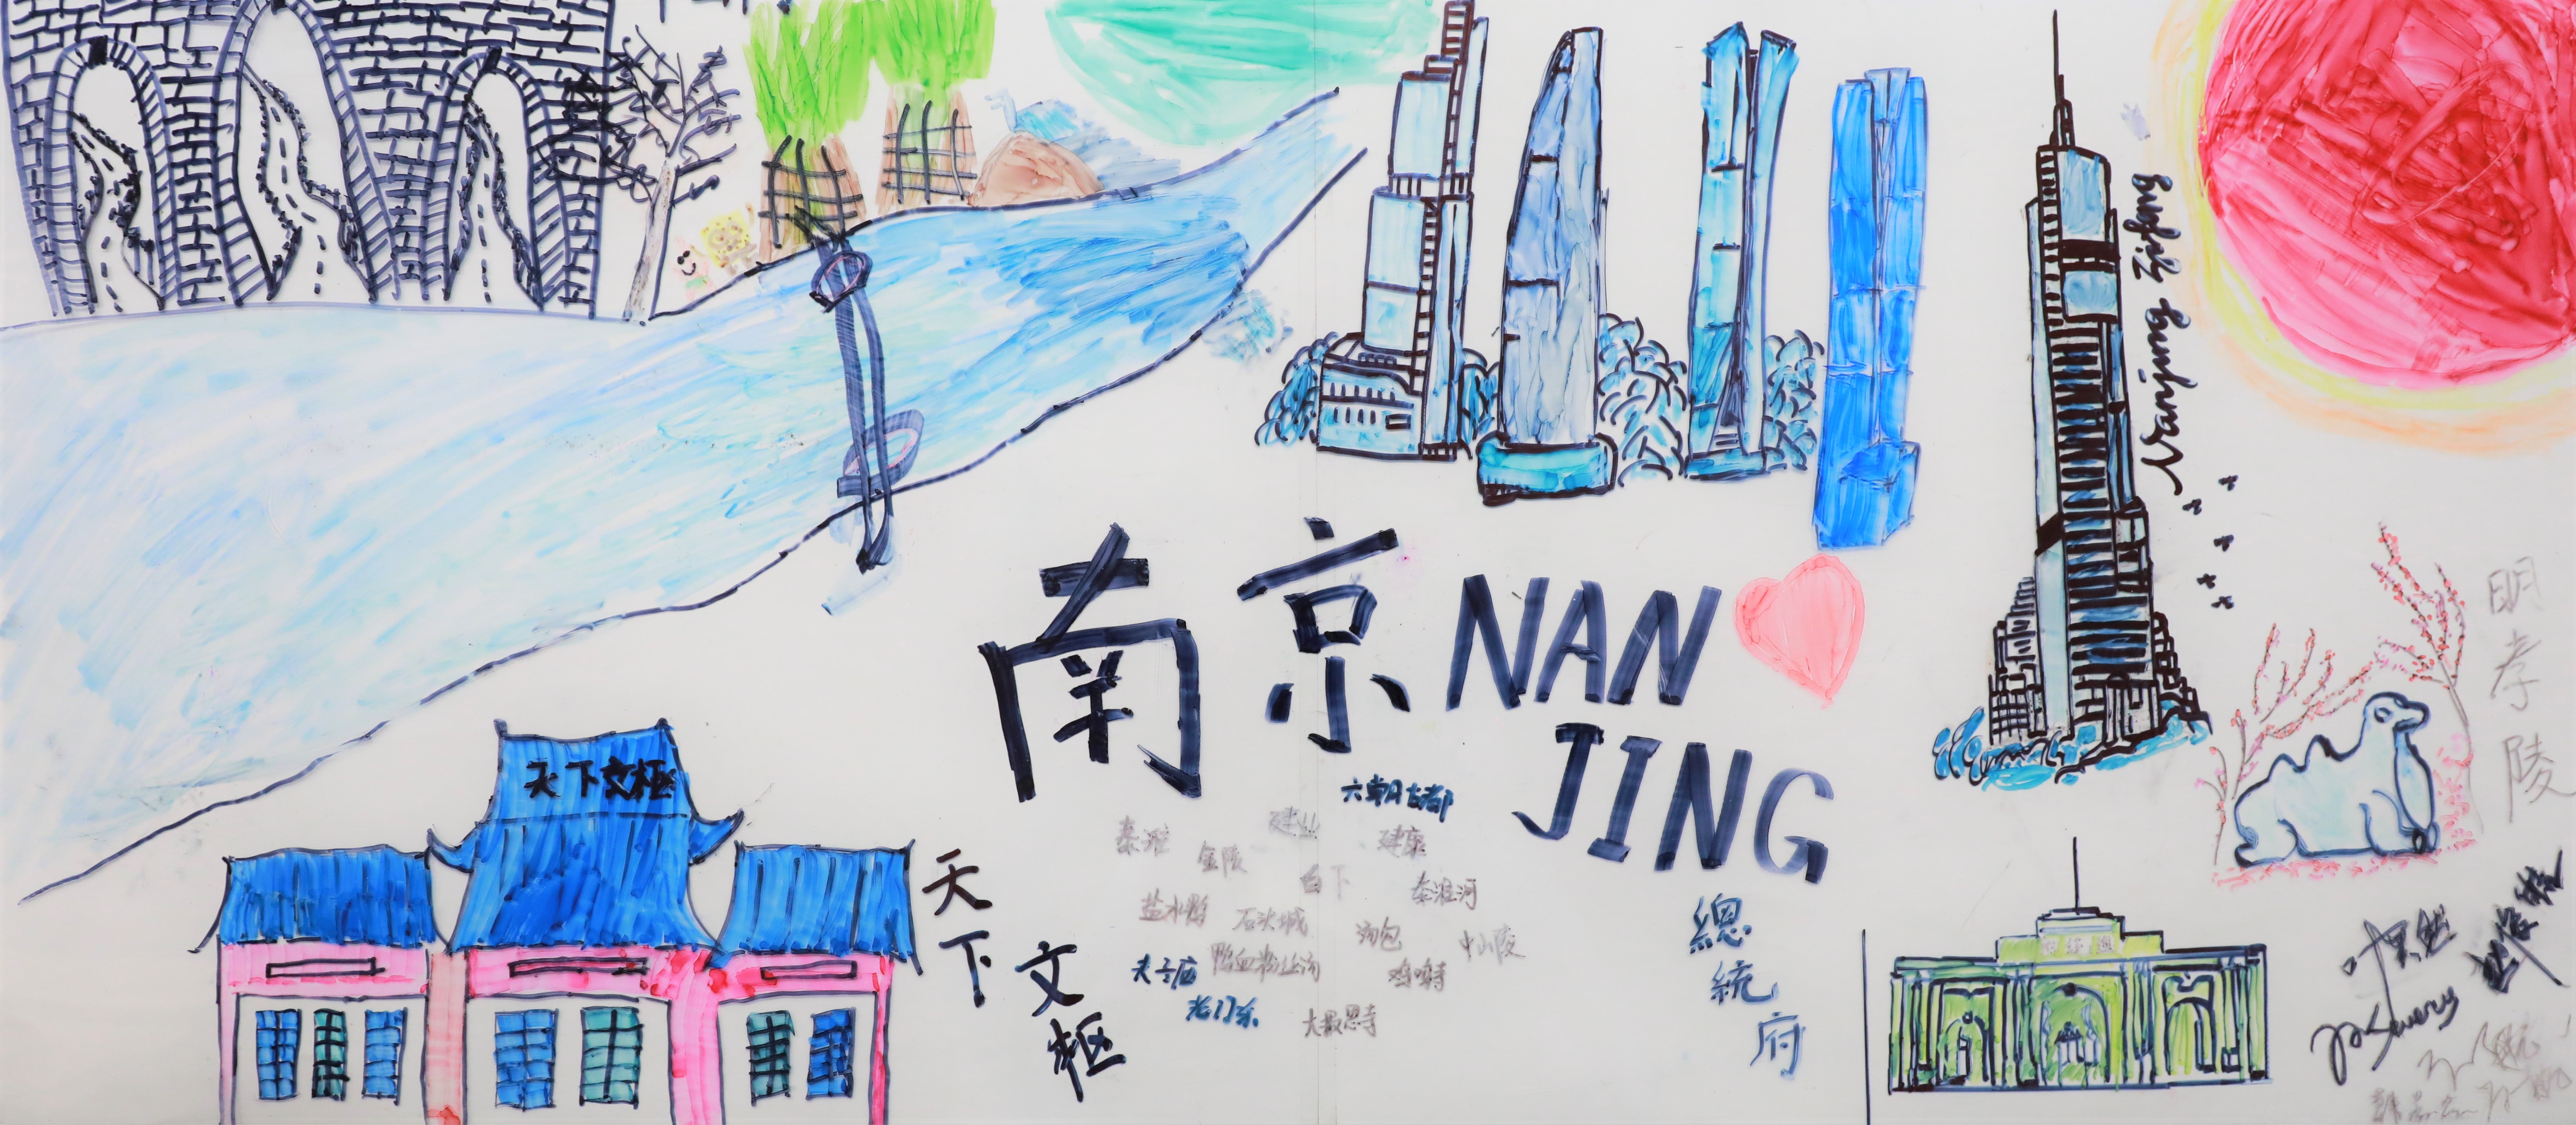 Nanjing Zifeng
南京
NAN
JING
明孝陵
天下文枢
天下文枢
六朝古都
建业
秦淮
金陵
建康
白下
秦淮河
盐水鸭
石头城
汤包
中山陵
夫子庙
鸭血粉丝汤
鸡鸣寺
老门东
大报恩寺
總統府